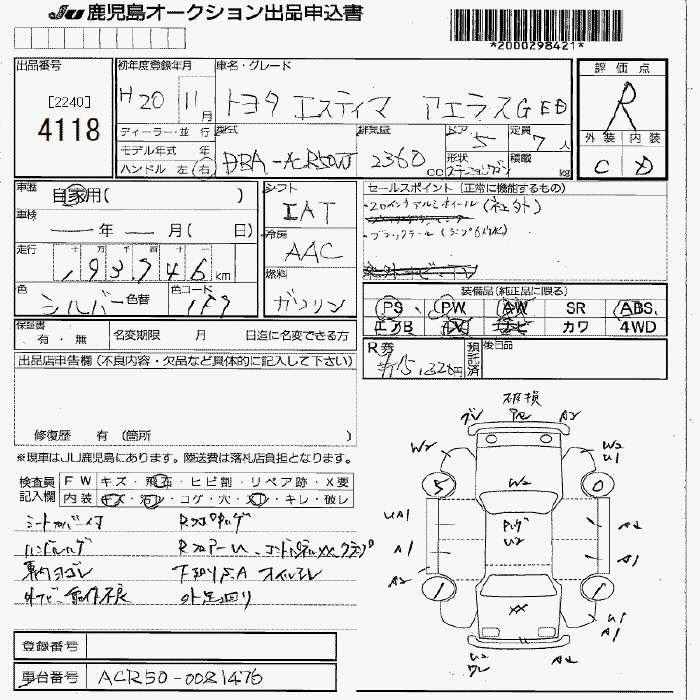 JU 鹿児島オークション出品申込書
*2000298421*
出品番号
[2240]
4118
初年度登録年月
H20 11月
車名・グレード
トヨタ エスティマ アエラスG ED
ディーラー・並行
モデル年式 年
ハンドル 左・右
型式
DBA-ACR50W
排気量
2360 cc
ドア 5
定員 7人
形状 ステーションワゴン
積載 kg
評価点
R
外装 内装
C D
車歴 自家用( )
車検 年 月( 日)
走行
十 万 千 百 十 一
193,746 km
色 シルバー 色替
色コード 1F7
シフト
IAT
冷房
AAC
燃料
ガソリン
セールスポイント (正常に機能するもの)
・20インチアルミホイール(社外)
・ブラックテール
装備品(純正品に限る)
PS PW AW SR ABS
エアB TV ナビ カワ 4WD
保証書 有・無
名変期限 月 日迄に名変できる方
R券 ¥15,320円
預託済
後日品
出品店申告欄(不良内容・欠品など具体的に記入して下さい)
修復歴 有 (箇所 )
※現車はJU鹿児島にあります。陸送費は落札店負担となります。
検査員記入欄
FW キズ・飛石・ヒビ割・リペア跡・X要
内装 キズ・汚レ・コゲ・穴・スレ・キレ・破レ
シートカバー付
ハンドルハゲ
車内ヨゴレ
下回りSA オイルモレ
外足回り
破損
A2
W2
W2
U1
5
0
W2
UA1
A1
A2
ハゲ
U2
A2
A1
1
1
XX
U1
A1
U2
ワレ
A2
登録番号
車台番号 ACR50-0081476